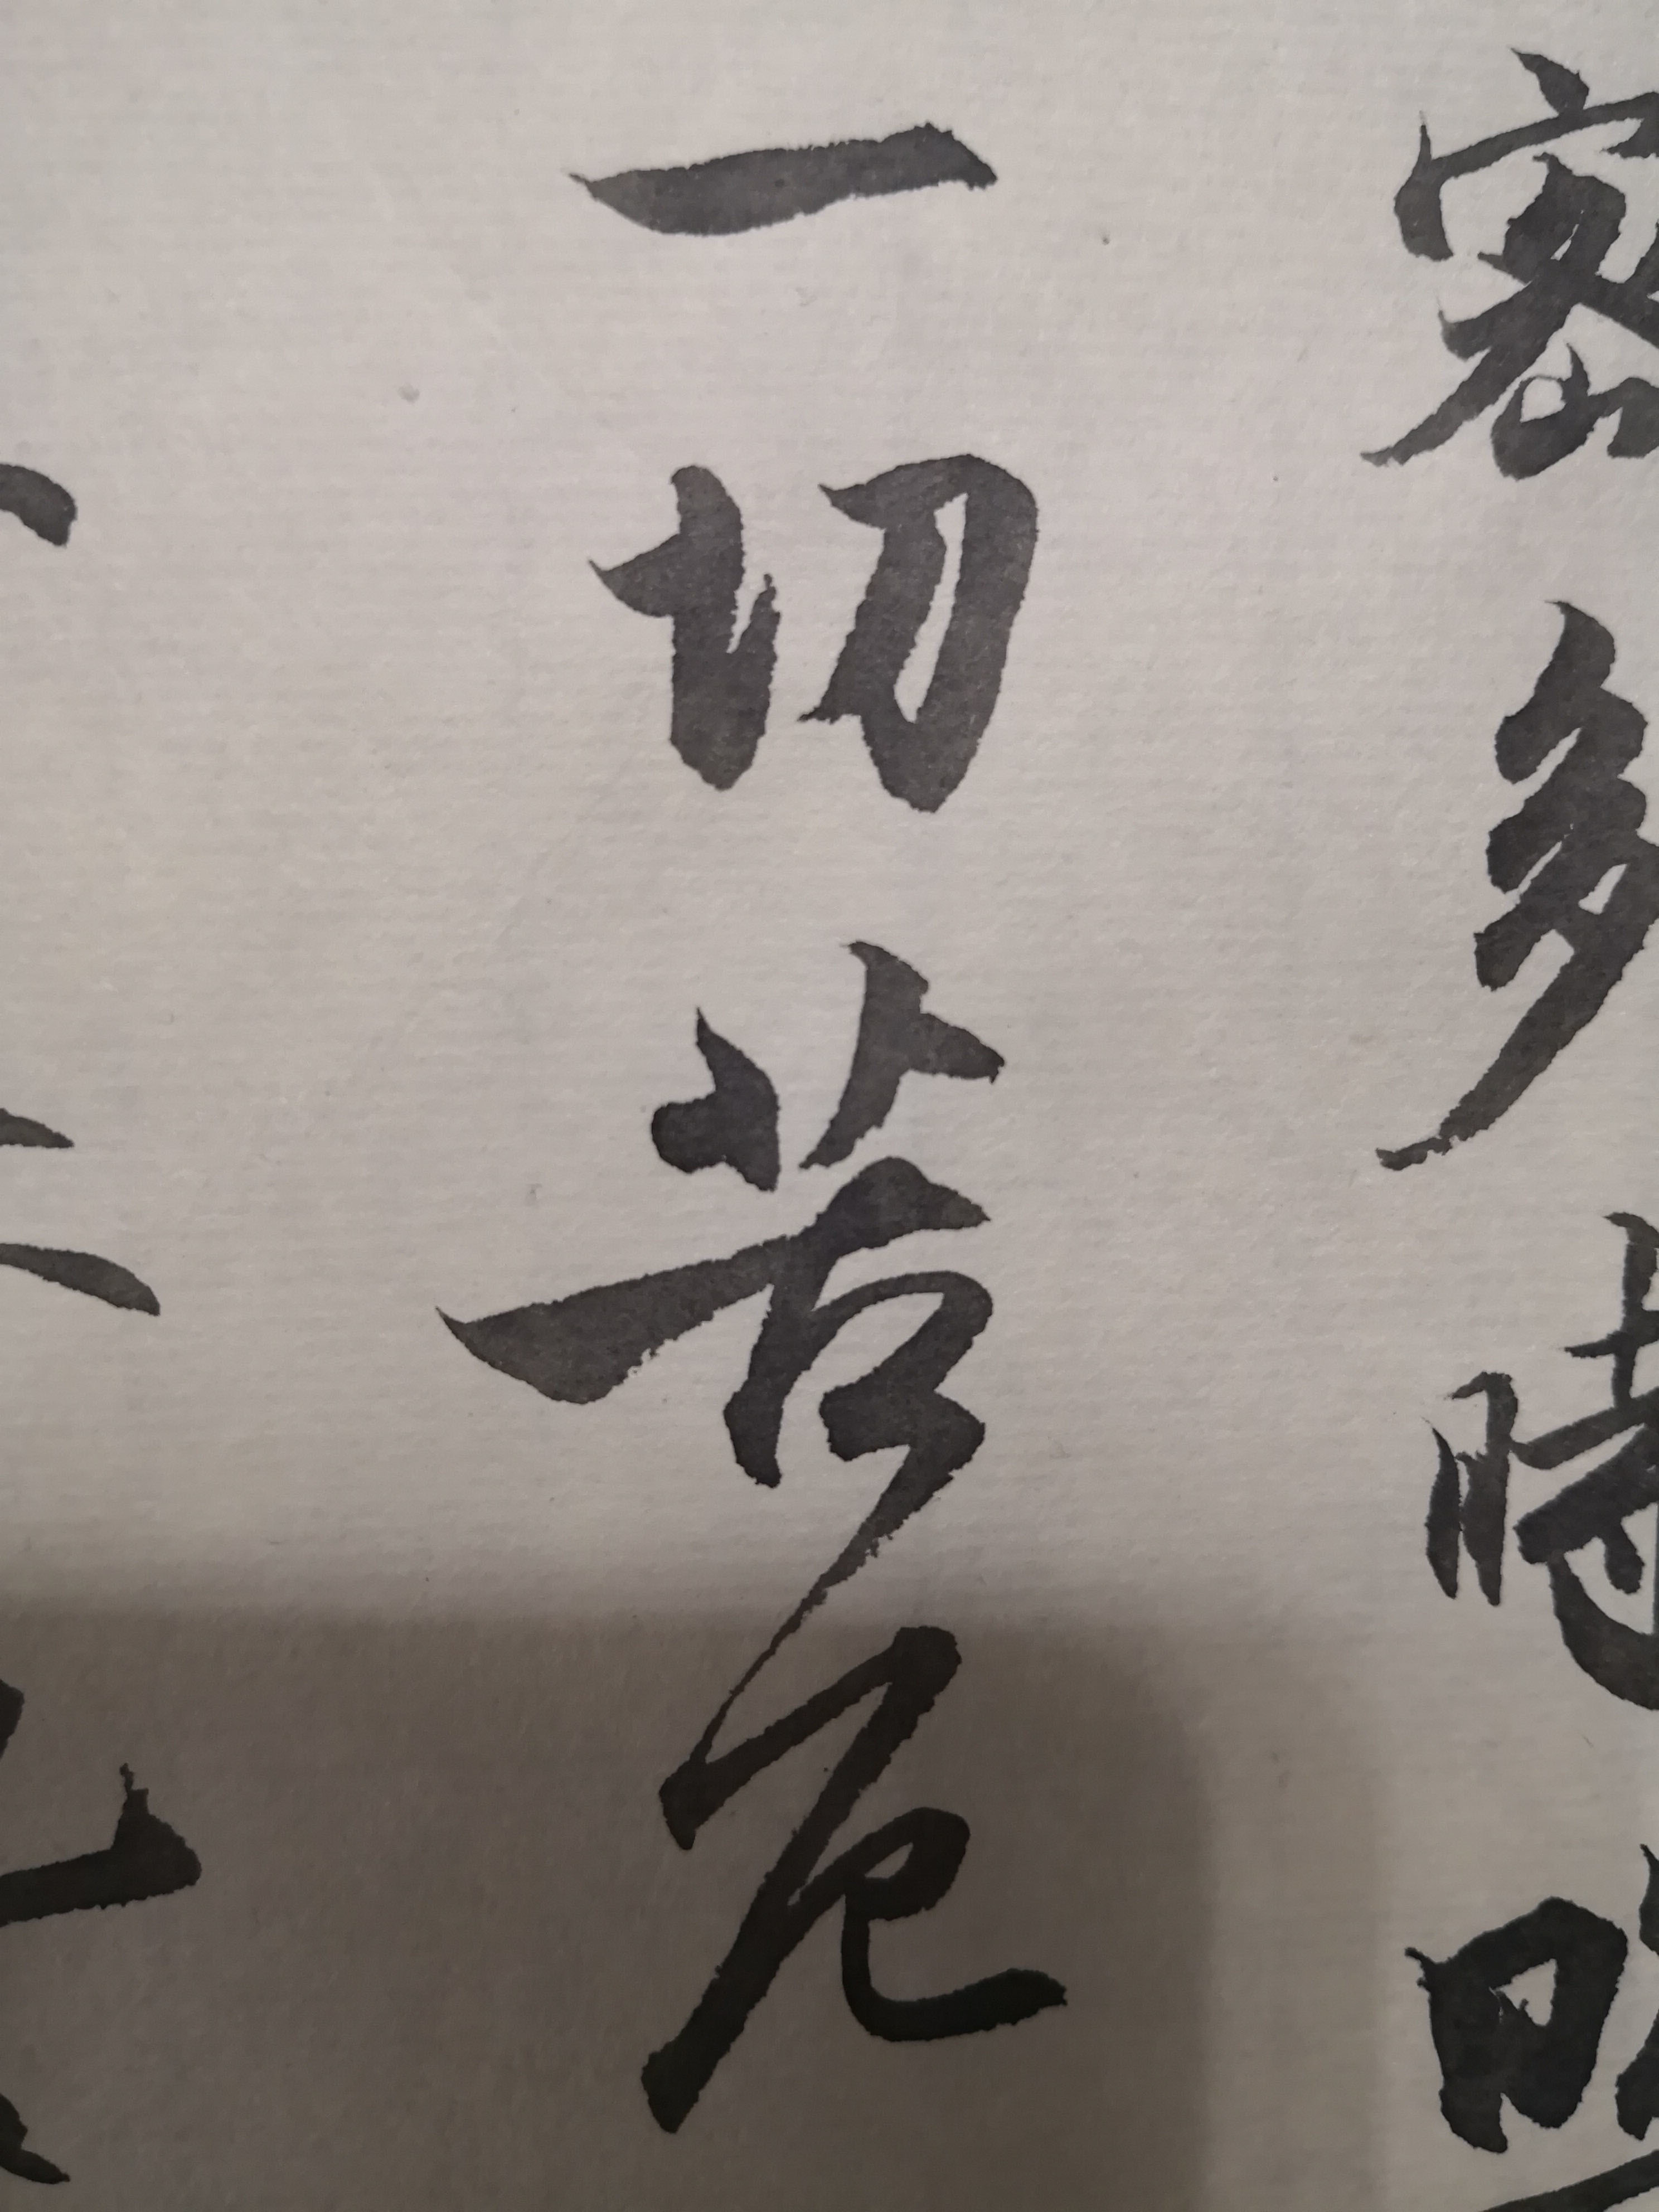 密多時照
一切苦厄